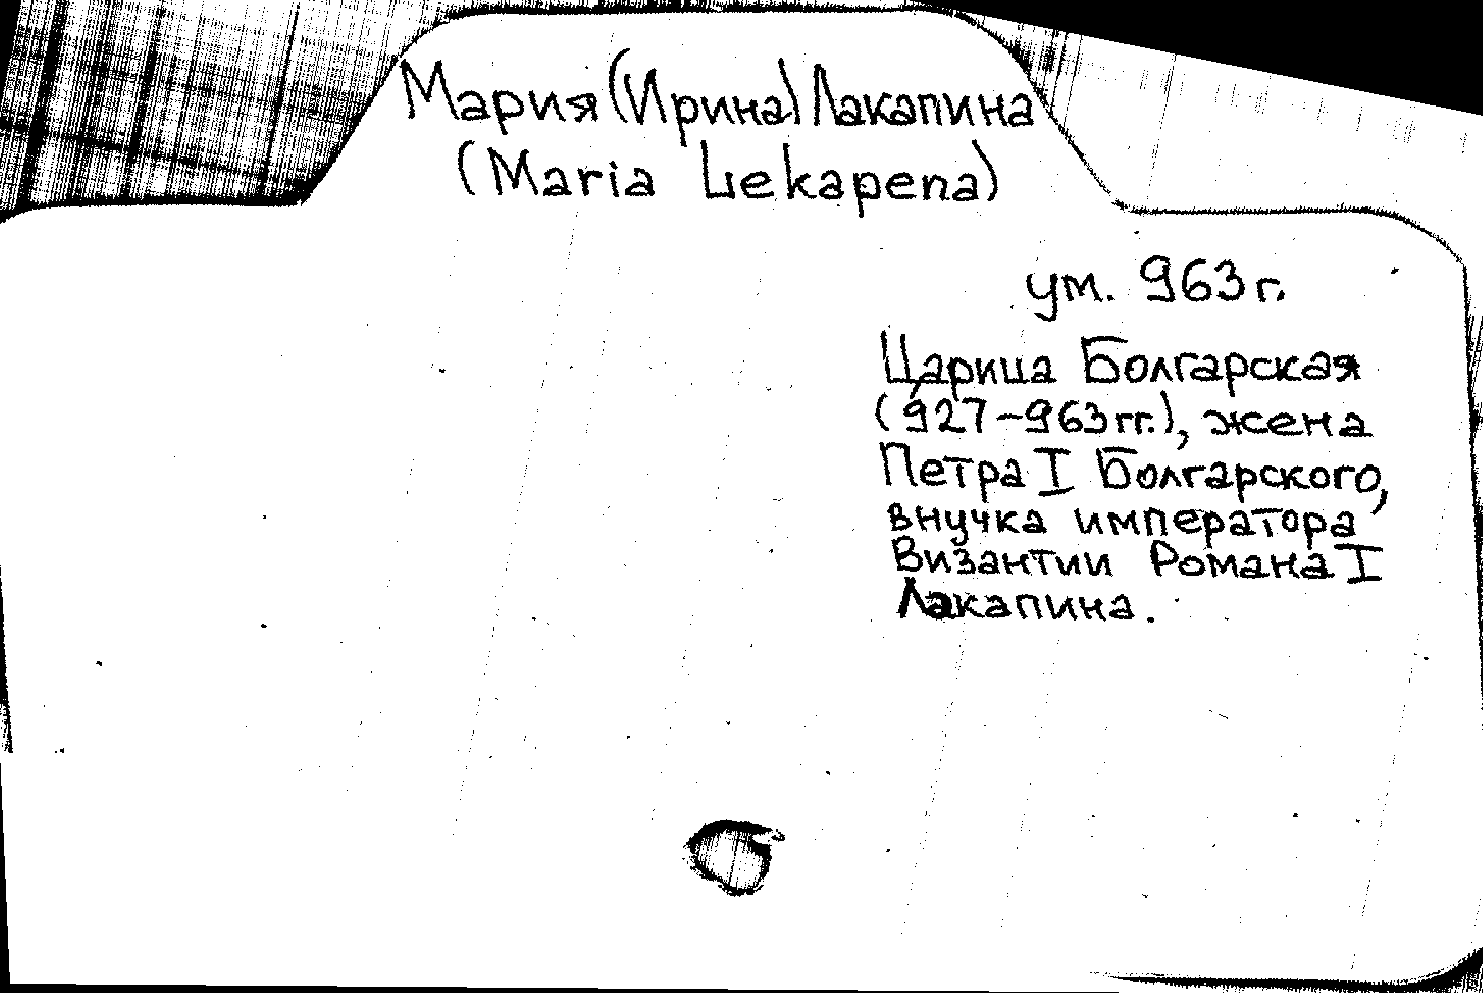 Мария (Ирина) Лакапина
(Maria Lekapena)
ум. 963 г.
Царица Болгарская
(927-963 гг.), жена
Петра I Болгарского,
внучка императора
Византии Романа I
Лакапина.